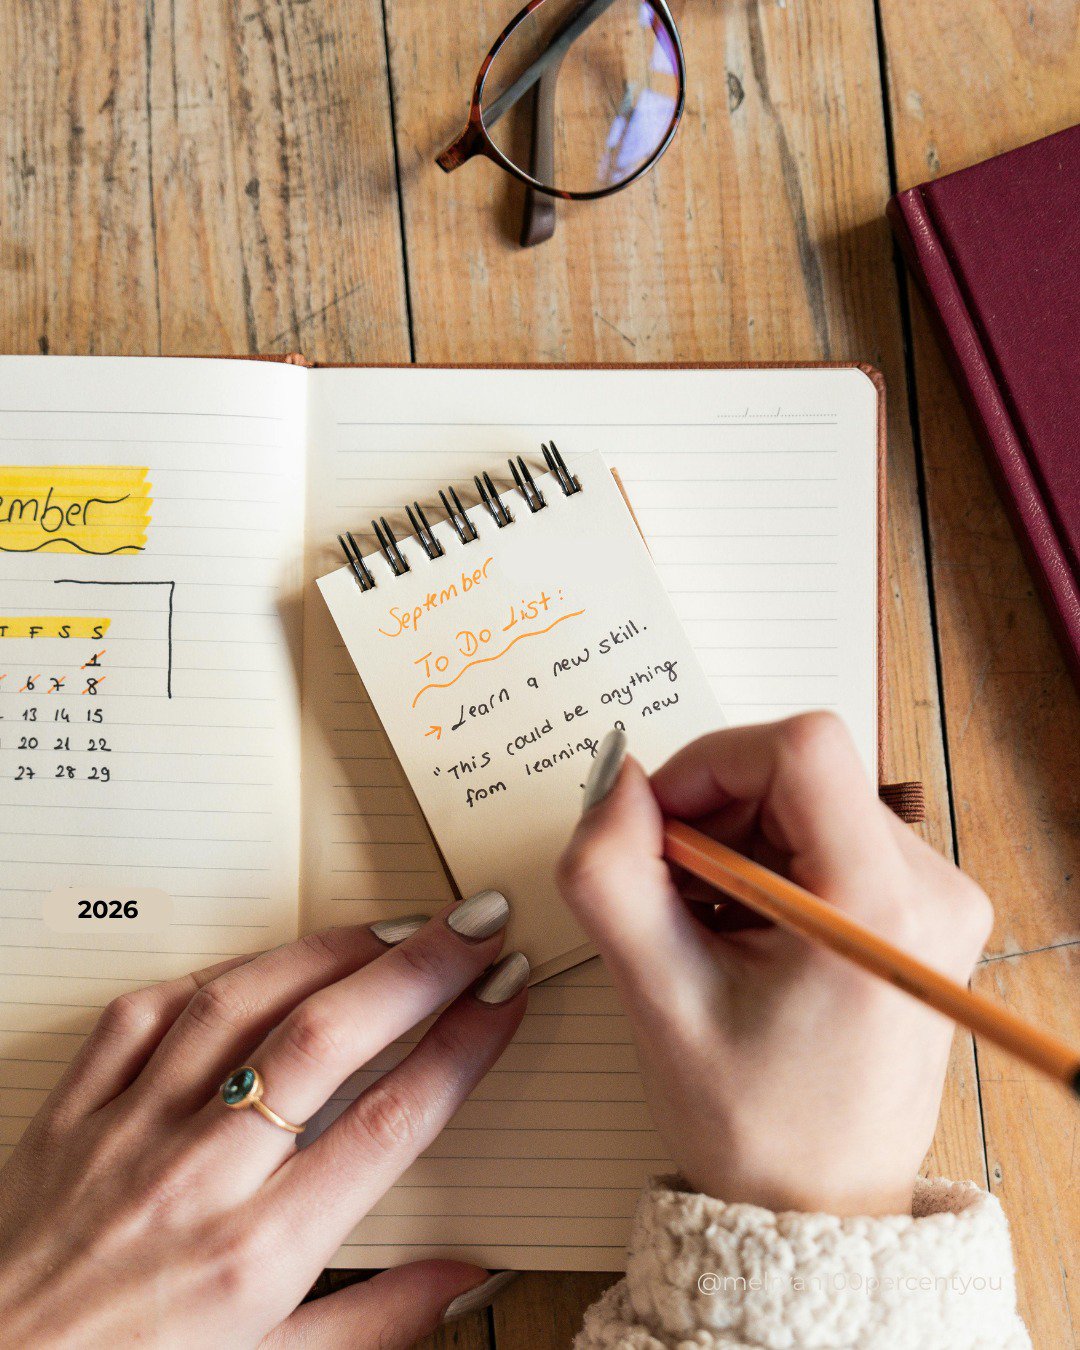 ember
T F S S
1
6 7 8
13 14 15
20 21 22
27 28 29
2026
September
To Do List:
→ Learn a new skill.
"This could be anything
from learning a new
@melnyan100percentyou